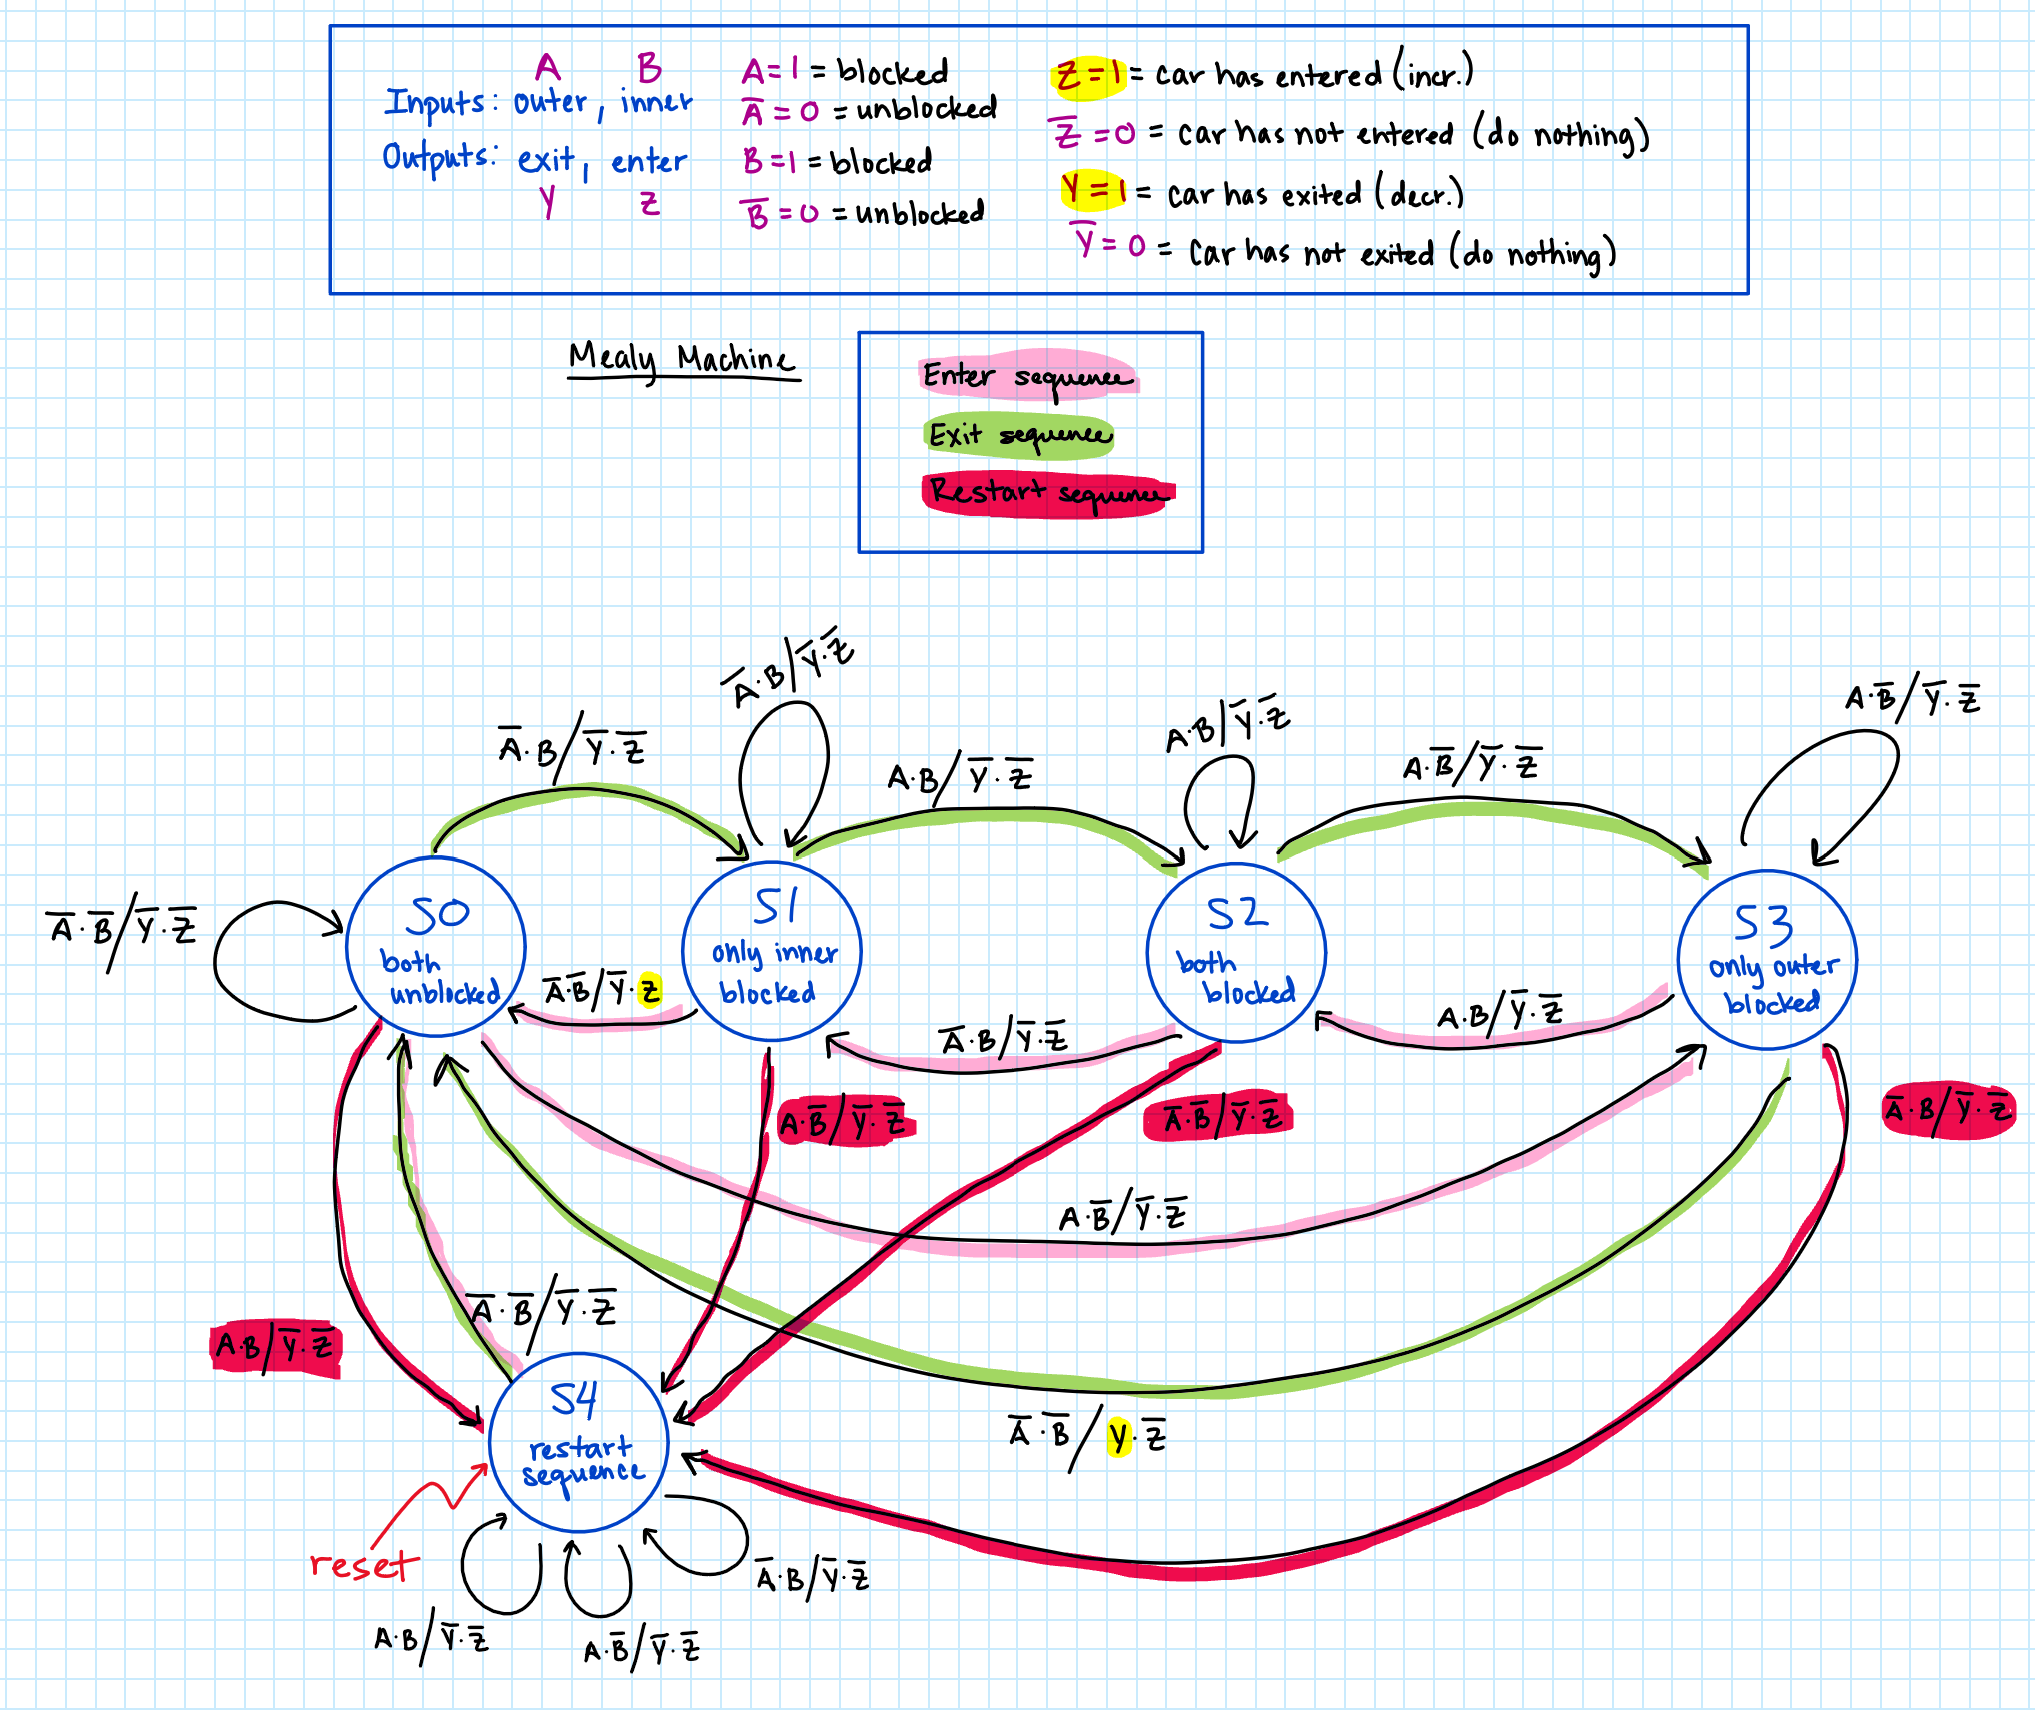 A B
Inputs: outer, inner
Outputs: exit, enter
Y Z
A=1 = blocked
A̅=0 = unblocked
B=1 = blocked
B̅=0 = unblocked
Z=1 = car has entered (incr.)
Z̅=0 = car has not entered (do nothing)
Y=1 = car has exited (decr.)
Y̅=0 = car has not exited (do nothing)
Mealy Machine
Enter sequence
Exit sequence
Restart sequence
A̅·B/Y̅·Z̅
A̅·B/Y̅·Z̅
A·B/Y̅·Z̅
A·B/Y̅·Z̅
A·B̅/Y̅·Z̅
A·B̅/Y̅·Z̅
A̅·B̅/Y̅·Z̅
S0
both
unblocked
A̅·B̅/Y̅·Z
S1
only inner
blocked
A̅·B/Y̅·Z̅
S2
both
blocked
A·B/Y̅·Z̅
S3
only outer
blocked
A·B̅/Y̅·Z̅
A̅·B̅/Y̅·Z̅
A̅·B/Y̅·Z̅
A·B̅/Y̅·Z̅
A̅·B̅/Y̅·Z̅
A·B/Y̅·Z̅
A̅·B̅/Y·Z̅
S4
restart
sequence
reset
A̅·B/Y̅·Z̅
A·B/Y̅·Z̅
A·B̅/Y̅·Z̅